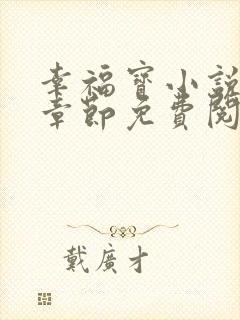 幸福寶小說
章節免費閱
戴廣才